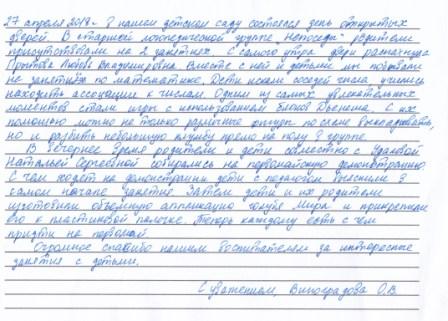 27 апреля 2018г. в нашем детском саду состоялся день открытых
дверей. В старшей логопедической группе "Непоседы" родители
присутствовали на 2 занятиях. С самого утра двери распахнула
Любовь Владимировна. Вместе с ней и детьми мы побывали
на занятии по математике. Дети искали соседей числа, учились
находить ассоциации к числам. Одним из самых увлекательных
моментов стали игры с использованием блоков Дьенеша. С их
помощью можно не только различные фигуры по схеме выкладывать,
но и разбить небольшую клумбу прямо на полу в группе.
В вечернее время родители и дети совместно с
Натальей Сергеевной собирались на первомайскую демонстрацию.
С чем ходят на демонстрации дети с педагогом выяснили в
самом начале занятия. Затем дети и их родители
изготовили объемную аппликацию голубя Мира и прикрепили
его к пластиковой палочке. Теперь каждому есть с чем
прийти на первомай.
Огромное спасибо нашим воспитателям за интересные
занятия с детьми.
С уважением, Виноградова О.В.